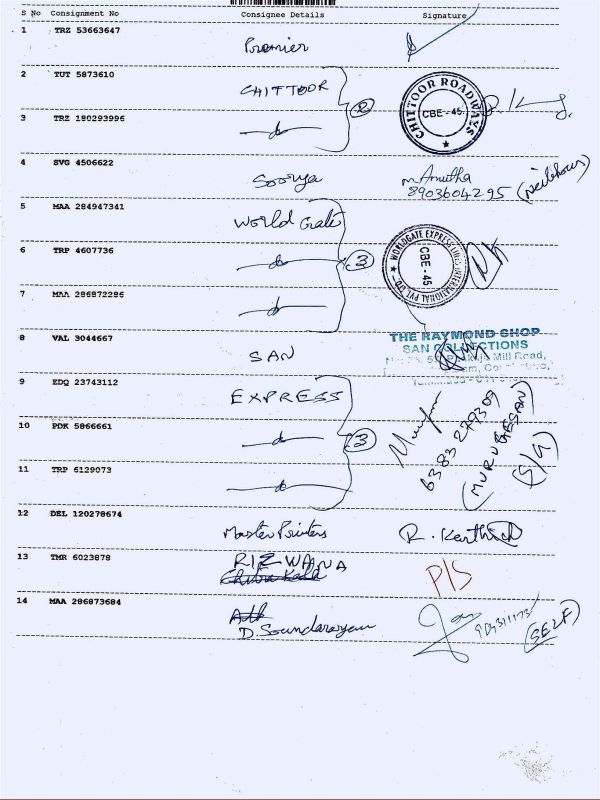 S No Consignment No Consignee Details Signature
1 TRZ 53663647 Premier
2 TUT 5873610 CHITTOOR 2
CHITTOOR ROADWAYS CBE - 45
3 TRZ 180293996
4 SVG 4506622 Soorya m. Amutha
8903604295 (Neibhour)
5 MAA 284947341 World Gate
6 TRP 4607736 3
WORLDGATE EXPRESS LINES INTERNATIONAL PVT. LTD. CBE - 45
7 MAA 286872286
8 VAL 3044667 SAN
THE RAYMOND SHOP
SAN COLLECTIONS
Mill Road,
9 EDQ 23743112 EXPRESS
10 PDK 5866661 3
6383279309
(MURUGESAN)
(S/G)
11 TRP 6129073
12 DEL 120278674 Master Printers R. Karthick
13 TMR 6023878 RIZWANA P/S
14 MAA 286873684
D. Soundarayan (SELF)